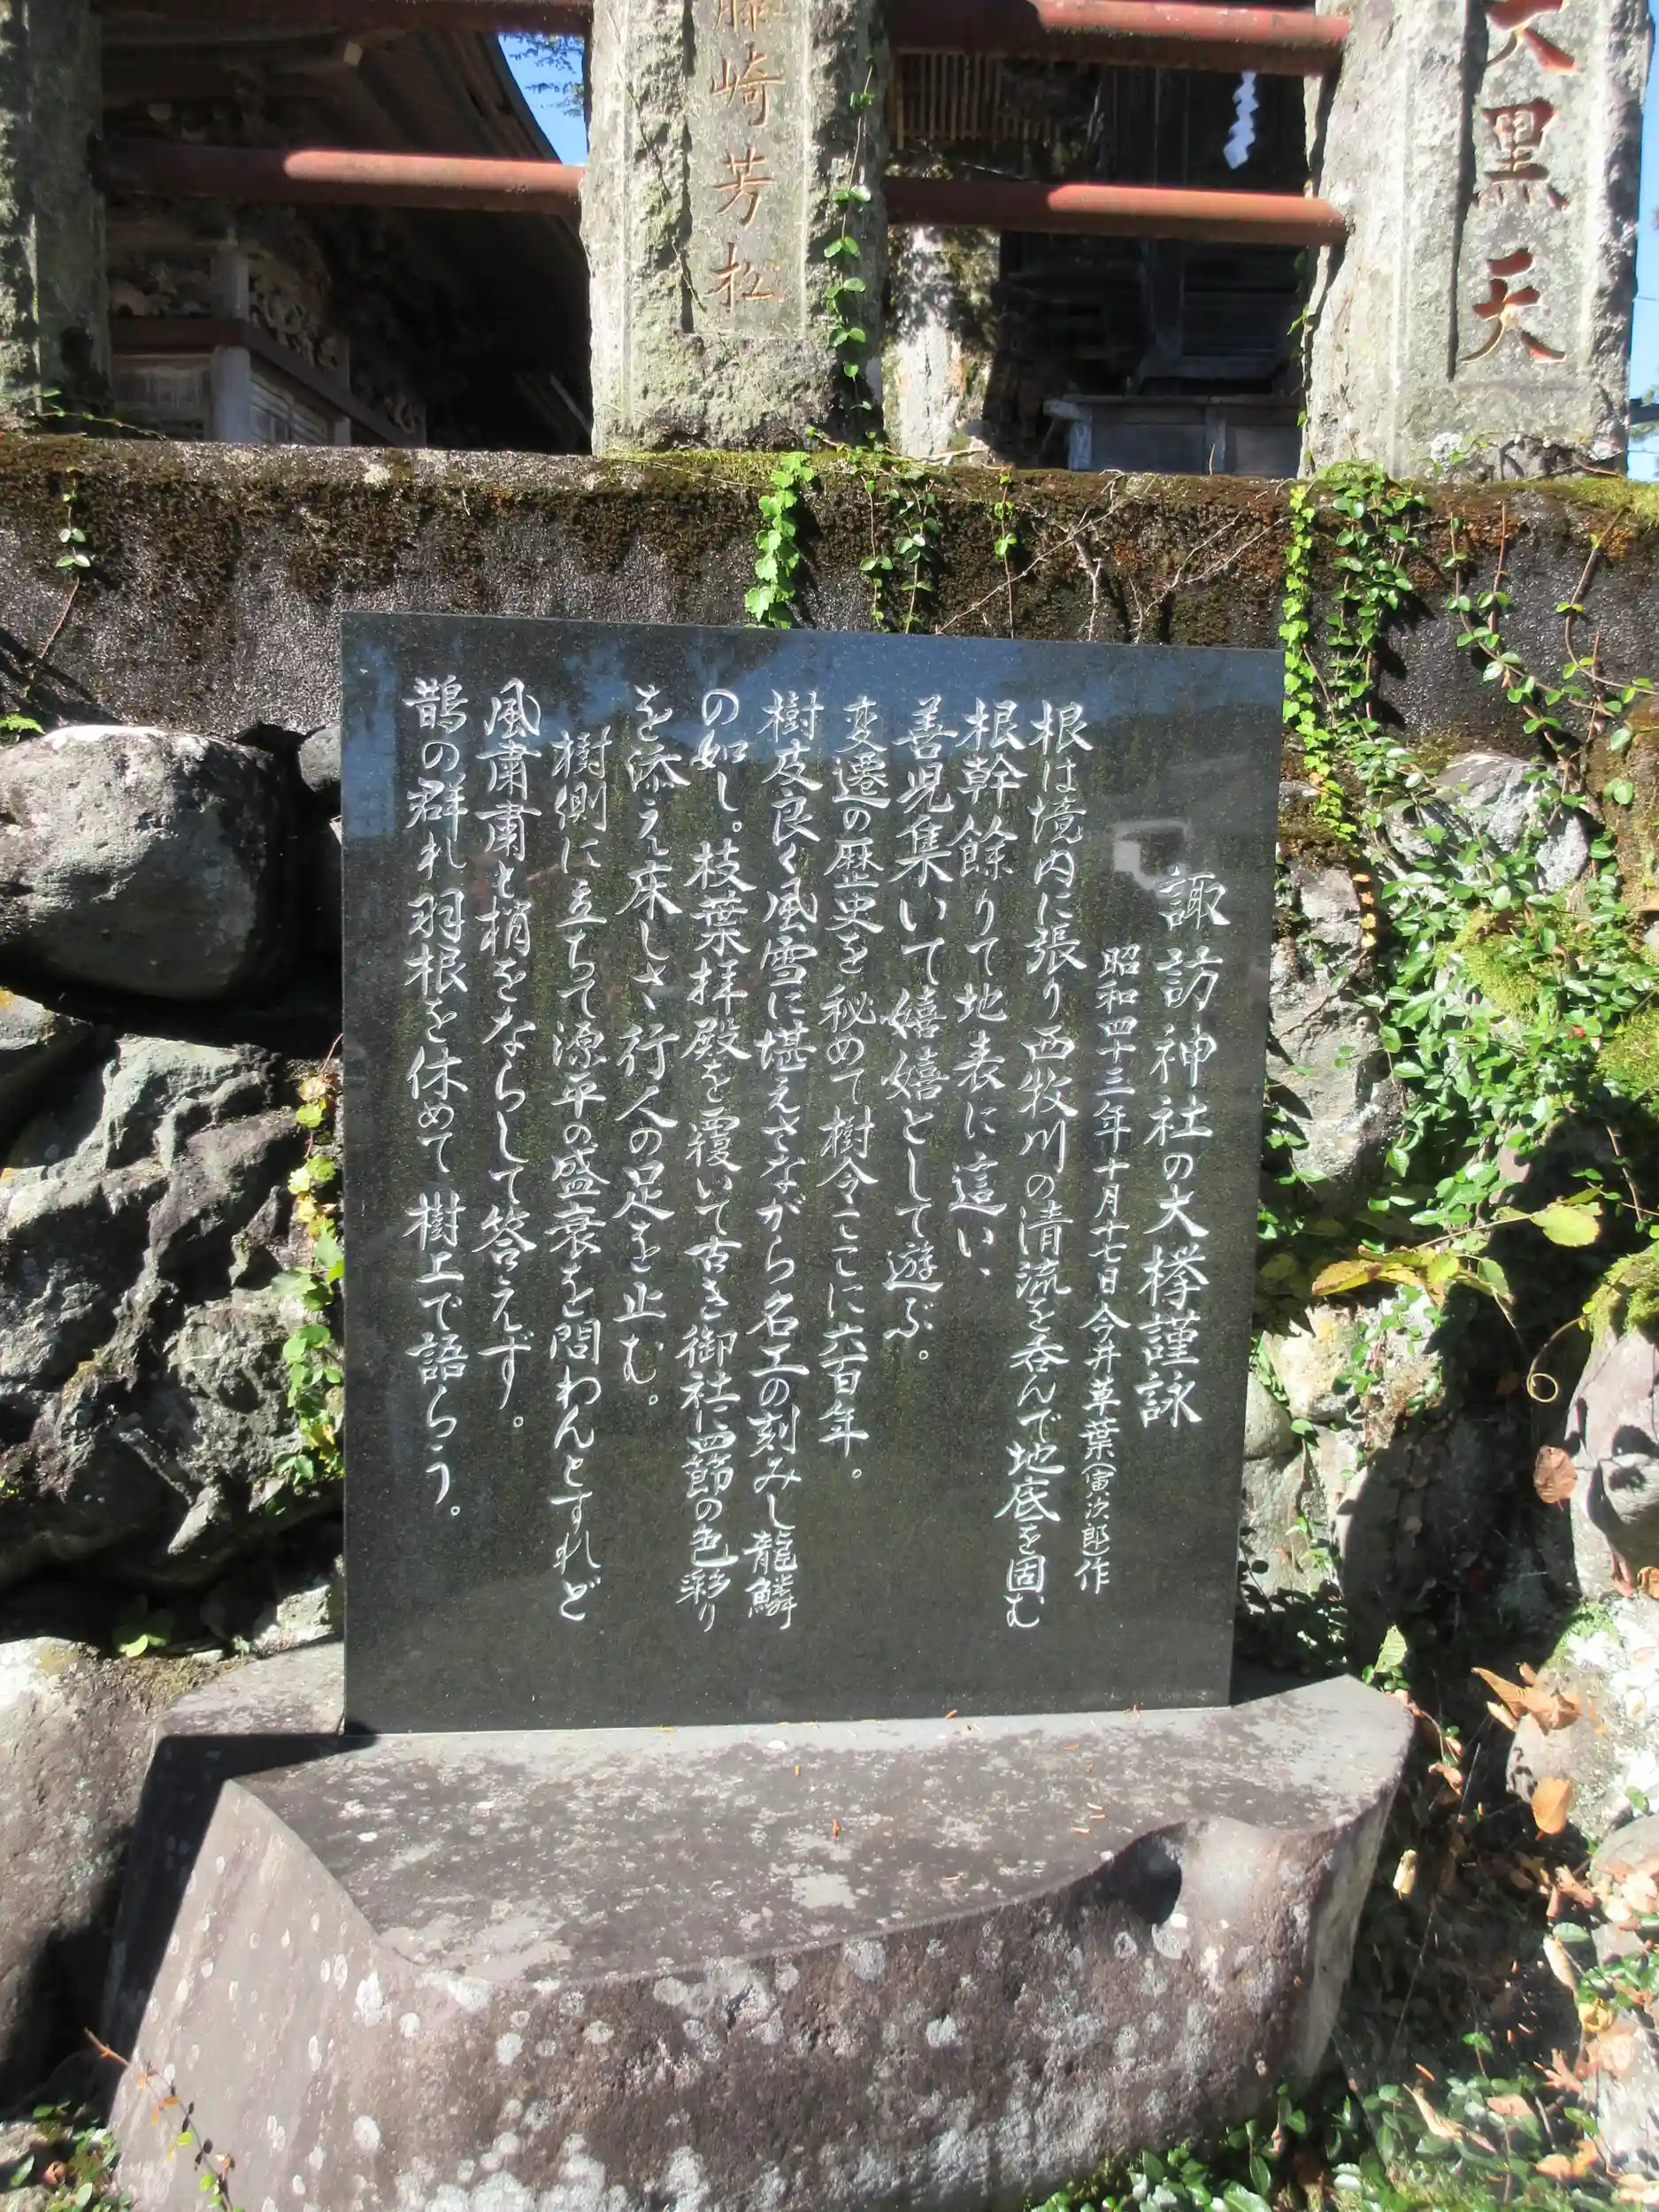 大黒天
藤崎芳松
諏訪神社の大欅謹詠
昭和四十三年十月十七日今井草葉(寅次郎)作
根は境内に張り西牧川の清流を呑んで地底を固む
根幹餘りて地表に這い、
善児集いて嬉嬉として遊ぶ。
変遷の歴史を秘めて樹令ここに六百年。
樹皮良く風雪に堪えさながら名工の刻みし龍鱗
の如し。枝葉拝殿を覆いて古き御社に四節の色彩り
を添え床しさ行人の足を止む。
樹側に立ちて源平の盛衰を問わんとすれど
風粛粛と梢をならして答えず。
鵲の群れ羽根を休めて樹上で語らう。